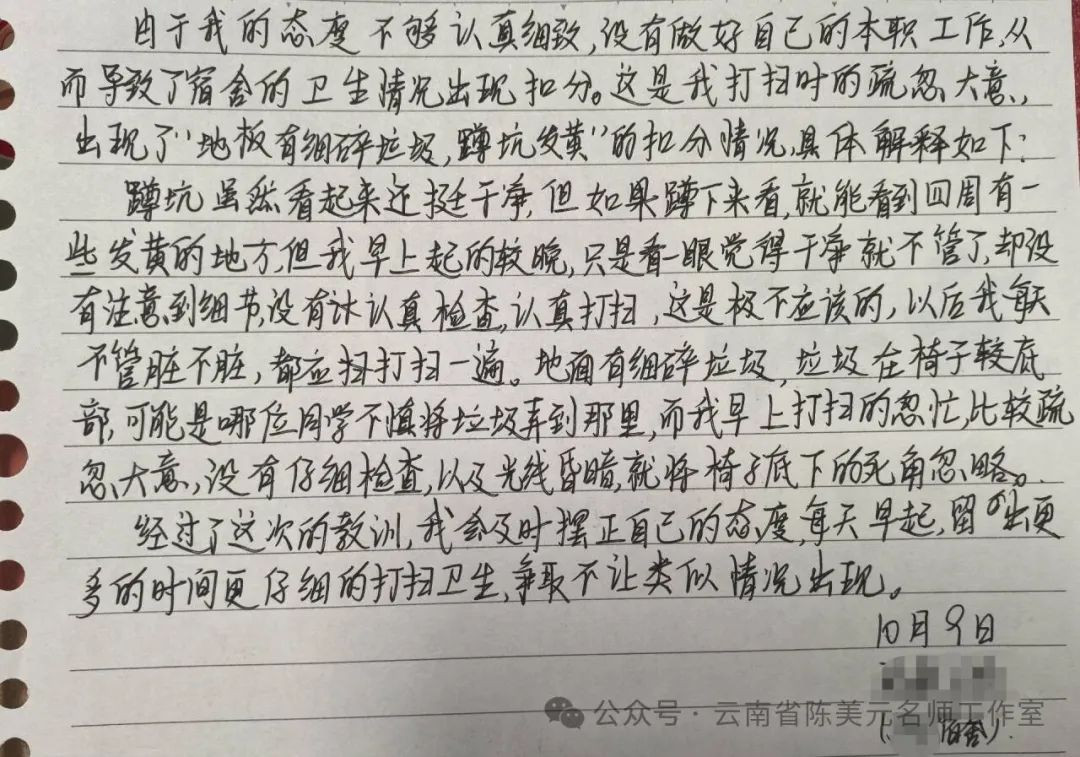 由于我的态度不够认真细致,没有做好自己的本职工作,从
而导致了宿舍的卫生情况出现扣分。这是我打扫时的疏忽大意,
出现了“地板有细碎垃圾,蹲坑发黄”的扣分情况,具体解释如下:
蹲坑虽然看起来还挺干净,但如果蹲下来看,就能看到四周有一
些发黄的地方,但我早上起的较晚,只是看一眼觉得干净就不管了,却没
有注意到细节,没有认真检查,认真打扫,这是极不应该的,以后我每天
不管脏不脏,都应打扫一遍。地面有细碎垃圾,垃圾在椅子较底
部,可能是哪位同学不慎将垃圾弄到那里,而我早上打扫的忽忙,比较疏
忽大意,没有仔细检查,以及光线昏暗,就将椅子底下的死角忽略。
经过了这次的教训,我会及时摆正自己的态度,每天早起,留出更
多的时间更仔细的打扫卫生,争取不让类似情况出现。
10月9日
公众号·云南省陈美元名师工作室
宿舍)